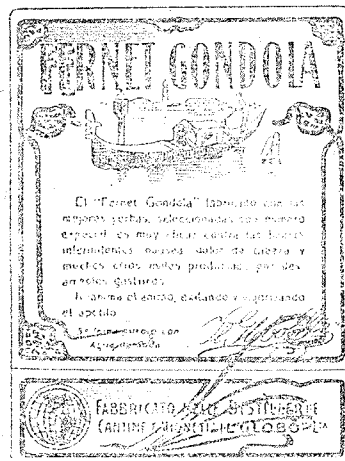 FERNET GONDOLA
El "Fernet Gondola" fabricado con las
mejores yerbas, seleccionadas con esmero
especial, es muy eficaz contra las fiebres
intermitentes, nausea, dolor de cabeza y
muchos otros males producidos por des-
arreglos gastricos.
Reanima el animo, exitando y vigorizando
el apetito
Se toma puro o con
Agua
FABBRICATO NELLE DISTILLERIE
CANTINE "IL GLOBO"